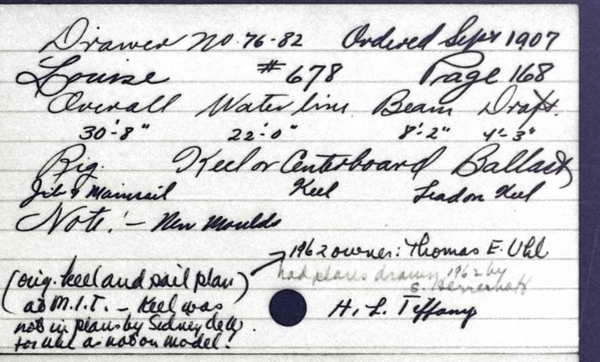 Drawer No. 76-82 Ordered Sept 1907
Louise #678 Page 168
Overall Water line Beam Draft.
30'-8" 22'-0" 8'-2" 4'-3"
Rig. Keel or Centerboard Ballast
Jib & Mainsail Keel Lead on Keel
Note:- New Moulds
1962 owner: Thomas E. Uhl
had plans drawn 1962 by
S. Herreshoff
H. L. Tiffany
(orig. keel and sail plan)
at M.I.T. - Keel was
not in plans by Sidney
for Uhl as not on model!